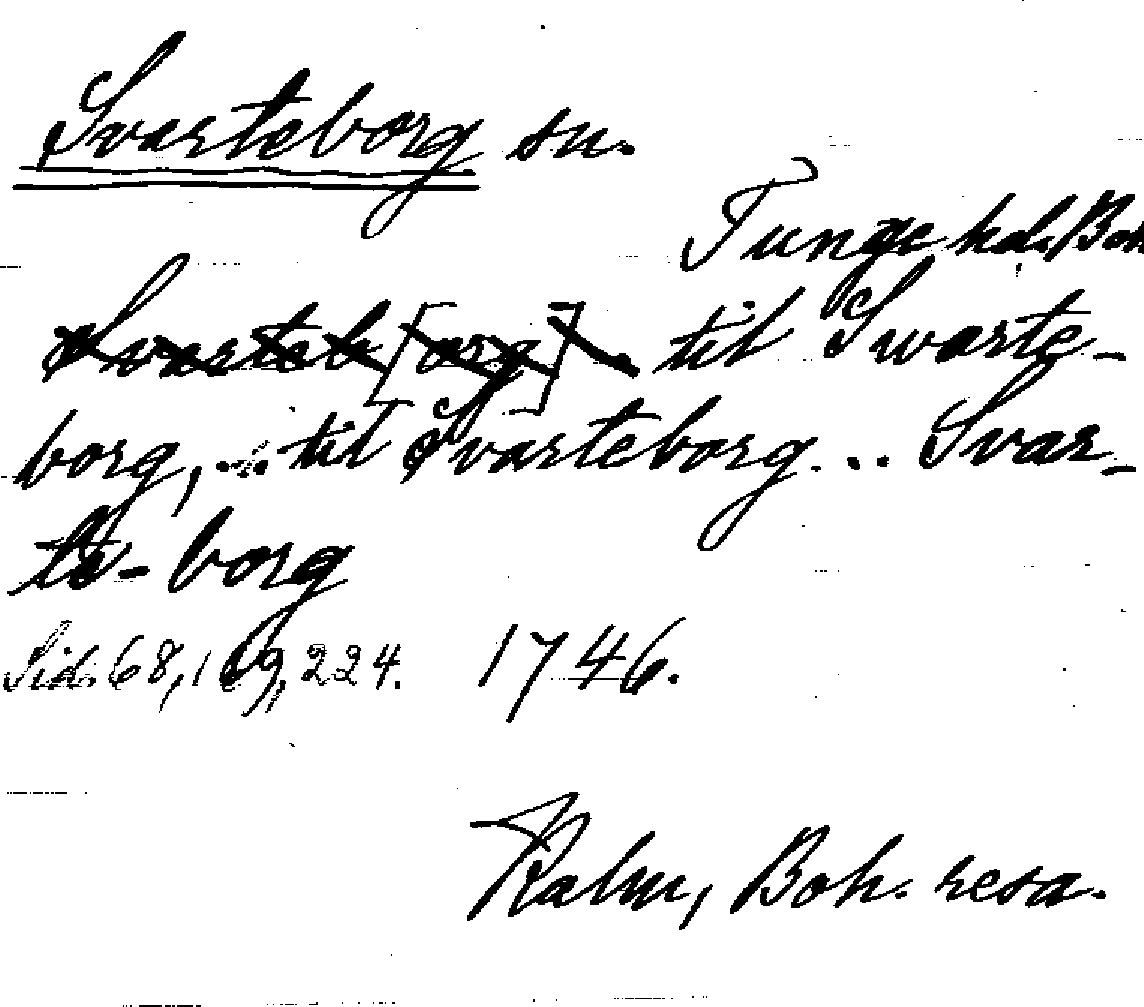 Svarteborg sn.
Tunge hd. Boh
Svarteb[org]. til Swarte-
borg, ... til Svarteborg. ... Svar-
te-borg
Sid. 68, 169, 224. 1746.
Kalm, Boh. resa.